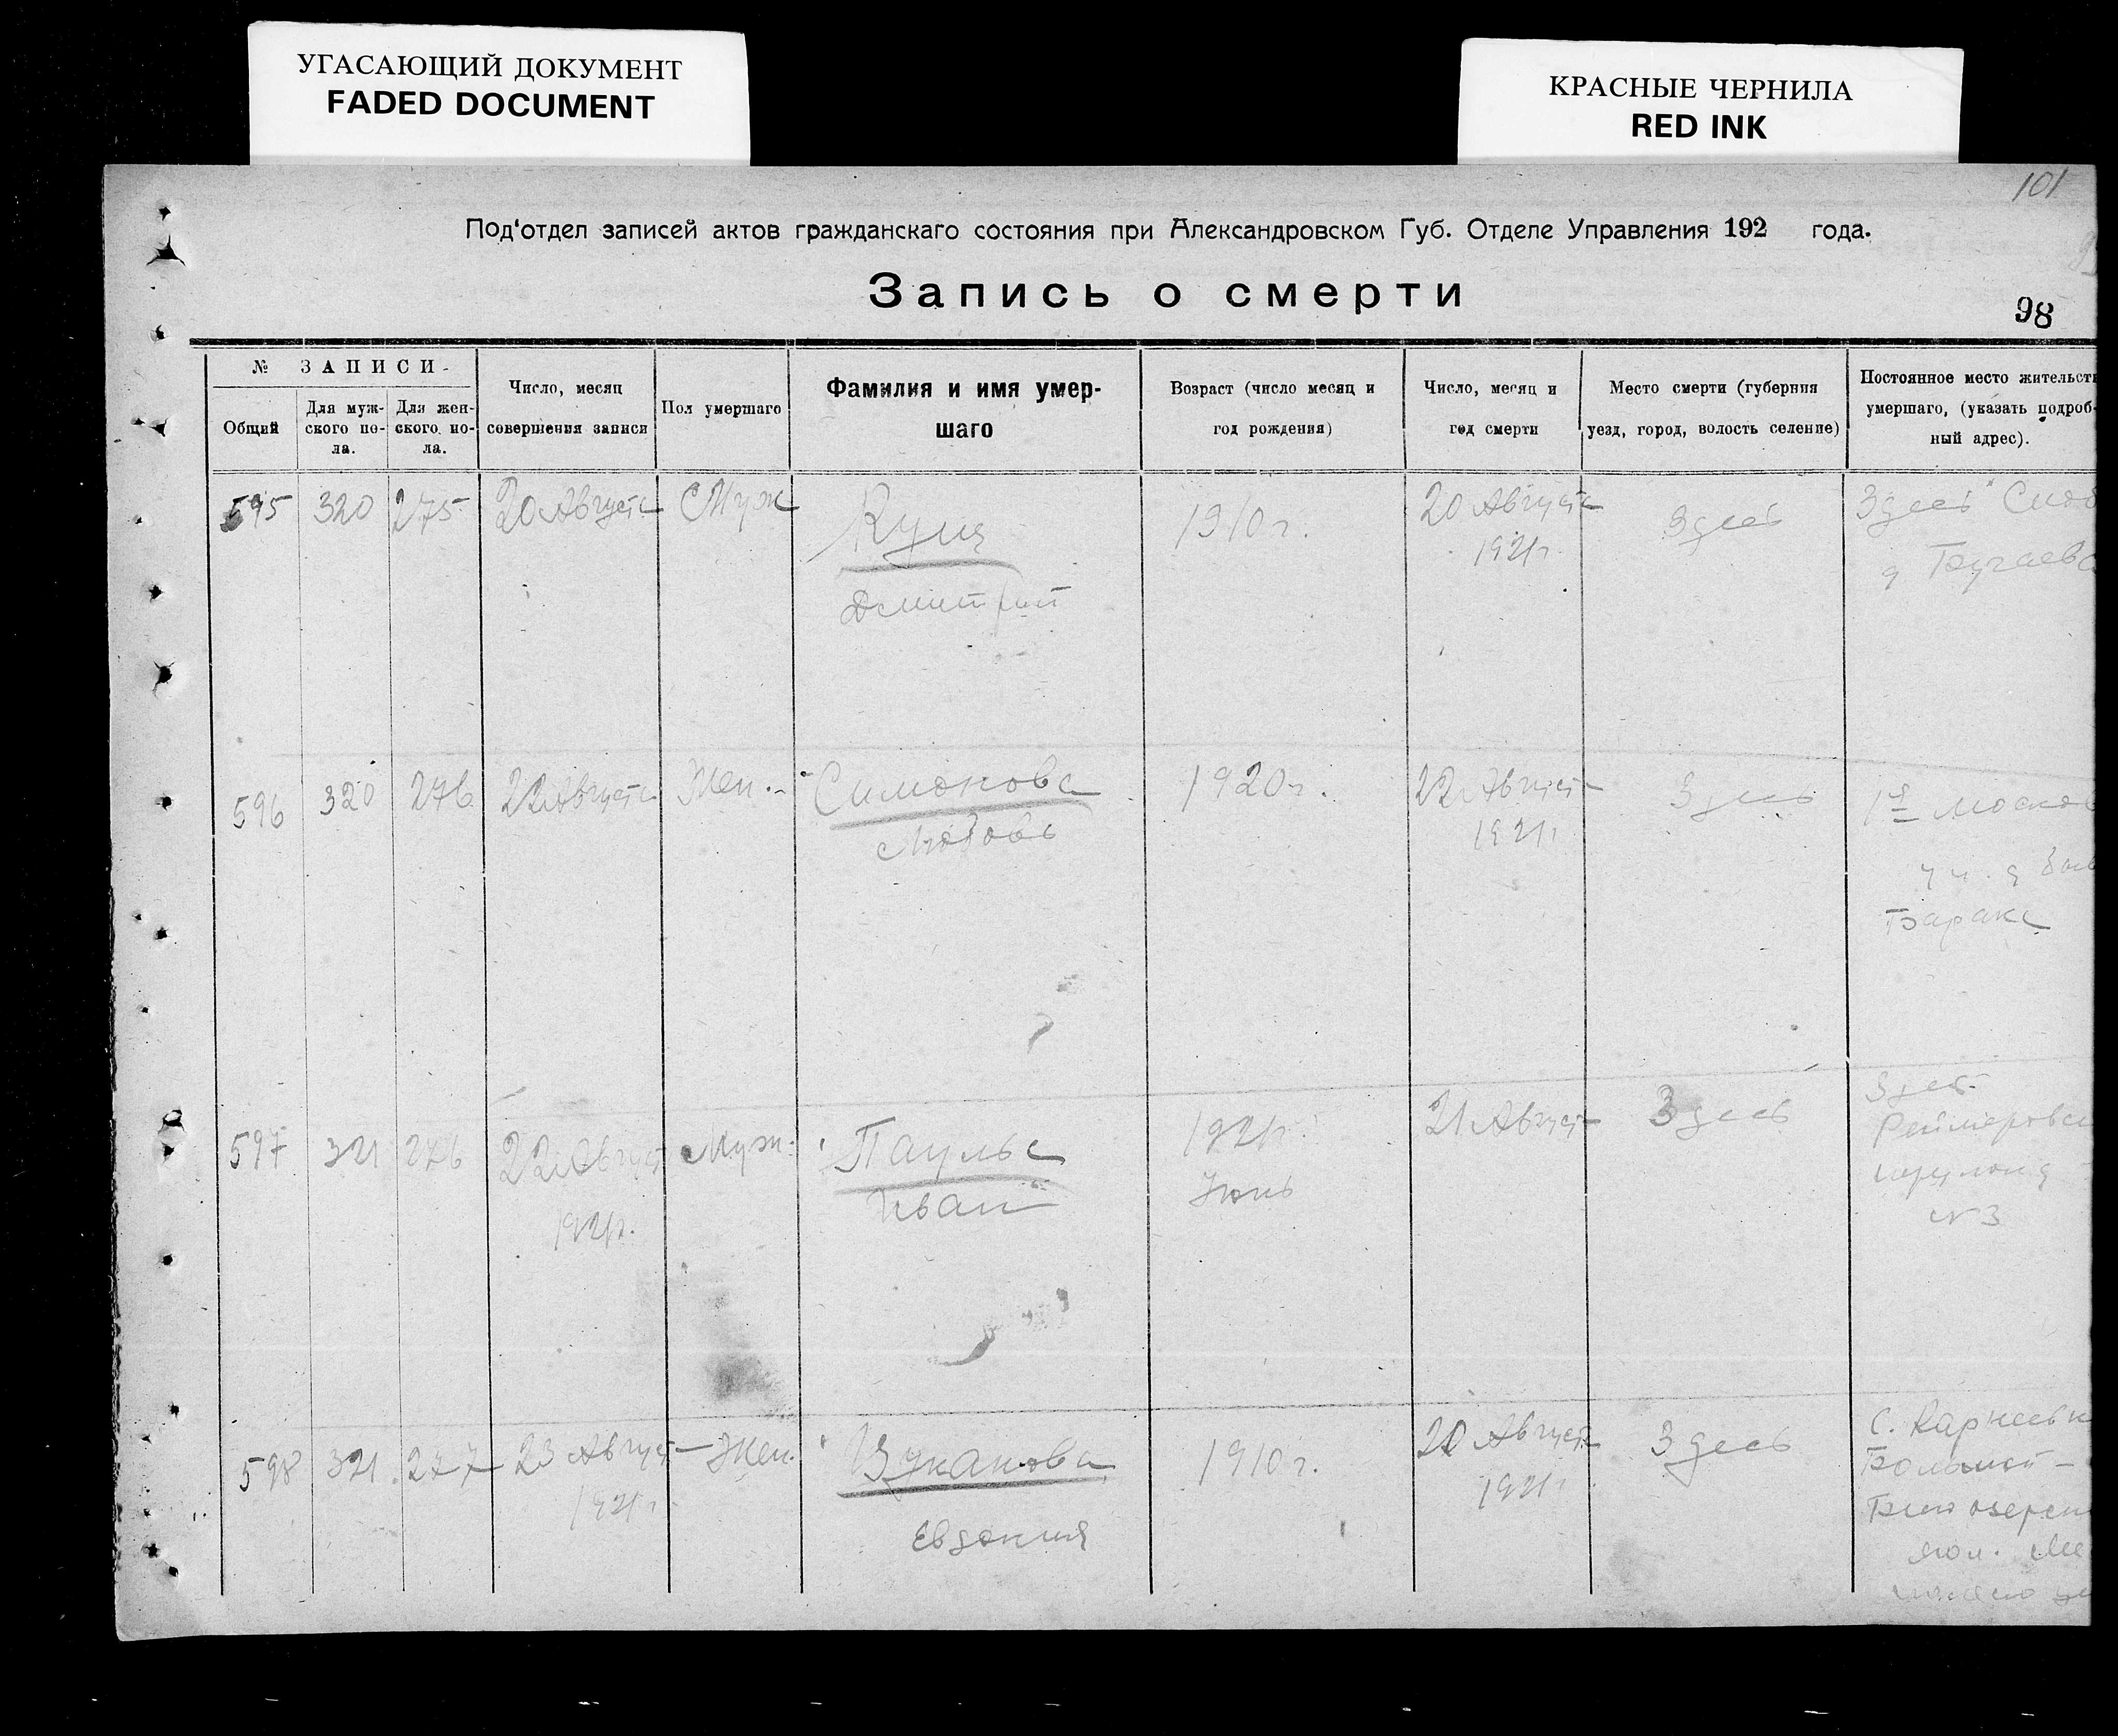 УГАСАЮЩИЙ ДОКУМЕНТ
FADED DOCUMENT
КРАСНЫЕ ЧЕРНИЛА
RED INK
101
Под'отдел записей актов гражданскаго состояния при Александровском Губ. Отделе Управления 192 года.
Запись о смерти
98
№ ЗАПИСИ
Общий
Для муж-
ского по-
ла.
Для жен-
ского по-
ла.
Число, месяц
совершения записи
Пол умершаго
Фамилия и имя умер-
шаго
Возраст (число месяц и
год рождения)
Число, месяц и
год смерти
Место смерти (губерния
уезд, город, волость селение)
Постоянное место жительств
умершаго, (указать подроб-
ный адрес).
595 320 275 20 Августа Муж
Куця
Дмитрий
1910 г.
20 Августа
1921 г.
Здесь
Здесь
596 320 276 22 Августа Жен.
Симонова
Любовь
1920 г.
22 Август
1921 г.
Здесь
1я
Барака
597 321 276 22 Август
1921 г.
Муж.
Паульс
Иван
1921 г.
Июнь
21 Август
Здесь
№ 3
598 321 277 23 Август
1921 г.
Жен.
Цуканова
Евдокия
1910 г.
20 Август
1921 г.
Здесь
с.